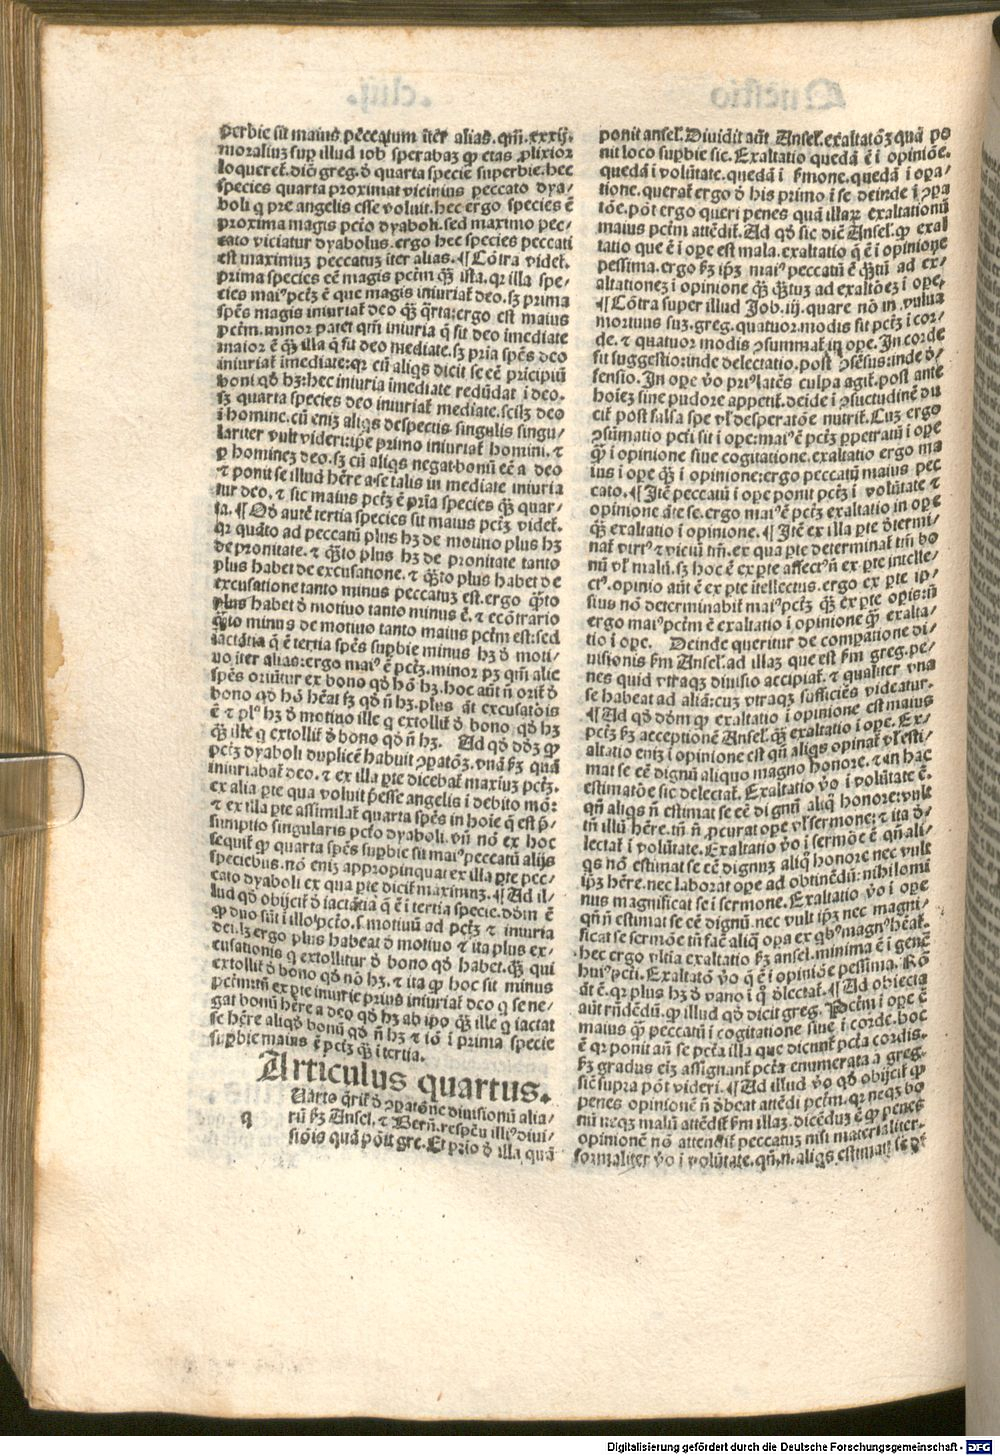 perbie sit maius peccatum īter alias. qm̄. xxxij.
moraliuꝫ sup illud iob sperabaꝫ ꝙ etas ꝓlixior
loqueret̄. dic̄ greg. ð quarta specie superbie. hec
species quarta proximat vicinius peccato dya/
boli q pre angelis esse voluit. hec ergo species ē
proxima magis pctō dyaboli. sed maximo pec/
cato viciatur dyabolus. ergo hec species peccati
est maximuꝫ peccatuꝫ iter alias. ¶ Cōtra videt̄.
prima species eē magis pctm̄ qꝫ̄ ista. qꝛ illa spe/
cies maiꝰ pctꝫ̄ ē que magis iniuriat̄ deo. sꝫ prima
spēs magis iniuriat̄ deo qꝫ̄ q̄rta: ergo est maius
pctm̄. minor patet qm̄ iniuria q̄ fit deo imediate
maior ē qꝫ̄ illa q̄ fit deo mediate. sꝫ pria spēs deo
iniuriat̄ imediate: qꝛ cū aliqs dicit se eē pricipiū
boni qð hꝫ: hec iniuria imediate redūdat i deo.
sꝫ quarta species deo iniuriat̄ mediate. scilꝫ deo
i homine. cū eniꝫ aliqs despectis singulis singu/
lariter vult videri: ipe primo iniuriat̄ homini. ⁊
ꝑ homineꝫ deo. sꝫ cū aliqs negat bonū eē a deo
⁊ ponit se illud hēre a se talis in mediate iniuria
tur deo. ⁊ sic maius pctꝫ̄ ē pria species qꝫ̄ quar/
ta. ¶ Qð autē tertia species sit maius pctꝫ̄ videt̄.
qꝛ quāto ad peccatū plus hꝫ de motiuo plus hꝫ
de pronitate. ⁊ qꝫ̄to plus hꝫ de pronitate tanto
plus habet de excusatione. ⁊ qꝫ̄to plus habet de
excusatione tanto minus peccatuꝫ est. ergo qꝫ̄to
plus habet ð motiuo tanto minus ē. ⁊ ecōtrario
qꝫ̄to minus de motiuo tanto maius pctm̄ est: sed
iactātia q̄ ē tertia spēs supbie minus hꝫ ð moti/
uo iter alias: ergo maiꝰ ē pctꝫ̄. minor pꝫ qm̄ alie
spēs oriūtur ex bono qð hō hꝫ. hoc aut̄ n̄ orit̄ ð
bono qð hō hēat sꝫ qð n̄ hꝫ. plus āt excusatōis
ē ⁊ plꝰ hꝫ ð motiuo ille q extollit̄ ð bono qð hꝫ
qꝫ̄ ille q extollit̄ ð bono qð n̄ hꝫ. Ad qð dōꝫ ꝙ
pctꝫ̄ dyaboli duplicē habuit ꝯparatōꝫ. vnā sꝫ quā
iniuriabat̄ deo. ⁊ ex illa pte dicebat̄ maxiuꝫ pctꝫ̄.
ex alia pte qua voluit p̄esse angelis i debito mō:
⁊ ex illa pte assimilat̄ quarta spēs in hoie q̄ est p̄/
sumptio singularis pctō dyaboli. vn̄ nō ex hoc
sequit̄ ꝙ quarta spēs supbie sit maiꝰ peccatū alijs
speciebus. nō eniꝫ appropinquat ex illa pte pec/
cato dyaboli ex qua pte dicit̄ maximuꝫ. ¶ Ad il/
lud qð obijcit̄ ð iactātia q̄ ē i tertia specie. dōm ē
ꝙ duo sūt i illo pctō. s. motiuū ad pctꝫ̄ ⁊ iniuria
dei. lꝫ ergo plus habeat ð motiuo ⁊ ita plus ex/
cusationis q extollitur ð bono qð habet. qꝫ̄ qui
extollit̄ ð bono qð nō hꝫ. ⁊ ita ꝙ hoc sit minus
pctm̄ tn̄ ex pte iniurie prius iniuriat̄ deo q se ne/
gat bonū hēre a deo qð hꝫ ab ipo qꝫ̄ ille q iactat
se hēre aliqð bonū qð n̄ hꝫ ⁊ iō i prima specie
supbie maius ē pctꝫ̄ qꝫ̄ i tertia.
Articulus quartus.
q Uarto q̄rit̄ ð ꝯparatōne diuisionū alia/
rū sꝫ Ansel. ⁊ Bern̄. respcū illiꝰ diui/
siōis quā pōit gre. Et prio ð illa quā
ponit ansel̄. Diuidit aūt Ansel̄. exaltatōꝫ quā po
nit loco supbie sic. Exaltatio quedā ē i opiniōe.
quedā i volūtate. quedā i s̄mone. quedā i opa/
tione. querat̄ ergo ð his primo i se deinde i ꝯpa
tōe. pōt ergo queri penes quā illaꝝ exaltationū
maius pctm̄ attēdit̄. Ad qð sic dicē Ansel̄. ꝙ exal
tatio que ē i ope est mala. exaltatio q̄ ē i opinione
pessima. ergo sꝫ ipꝫ maiꝰ peccatū ē qꝫ̄tū ad ex/
altationeꝫ i opinione qꝫ̄ qꝫ̄tuꝫ ad exaltōeꝫ i ope.
¶ Cōtra super illud Job. iij. quare nō in vulua
mortuus suꝫ. greg. quatuor modis fit pctꝫ̄ i cor/
de. ⁊ quatuor modis ꝯsummat̄ in ope. In corde
fit suggestio: inde delectatio. post ꝯsēsus: inde ð/
fensio. In ope ṽo priꝰ latēs culpa agit̄. post ante
hoieꝫ sine pudore appetit̄. deide i ꝯsuetudinē du
cit̄. post falsa spe vl̄ desperatōe nutrit̄. Cuꝫ ergo
ꝯsūmatio pcti sit i ope: maiꝰ ē pctꝫ̄ ppetratū i ope
qꝫ̄ i opinione siue cogitatione. exaltatio ergo ma
ius i ope qꝫ̄ i opinione: ergo peccatū maius pec
cato. ¶ Itē peccatū i ope ponit pctꝫ̄ i volūtate ⁊
opinione āte se. ergo maiꝰ ē pctꝫ̄ exaltatio in ope
qꝫ̄ exaltatio i opinione. ¶ Itē ex illa pte ðtermi/
nat̄ virtꝰ ⁊ viciū tm̄. ex qua pte determinat̄ tm̄ bo
nū vl̄ malū. sꝫ hoc ē ex pte affectꝰ n̄ ex pte intelle/
ctꝰ. opinio aūt ē ex pte itellectus. ergo ex pte ip/
sius nō determinabit̄ maiꝰ pctꝫ̄ qꝫ̄ ex pte opis: iñ
ergo maiꝰ pctm̄ ē exaltatio i opinione qꝫ̄ exalta/
tio i ope. Deinde queritur de compatione di/
uisionis sm̄ Ansel̄. ad illaꝫ que est sm̄ greg. pe/
nes quid vtraqꝫ diuisio accipiat̄. ⁊ qualiter vna
se habeat ad aliā: cuꝫ vtraqꝫ sufficiēs videatur.
¶ Ad qð dōm ꝙ exaltatio i opinione est maius
pctꝫ̄ sꝫ acceptionē Ansel̄. qꝫ̄ exaltatio i ope. Ex/
altatio eniꝫ i opinione est qn̄ aliqs opinat̄ vl̄ esti/
mat se eē dignū aliquo magno honore. ⁊ in hac
estimatōe sic delectat̄. Exaltatio ṽo i volūtate ē.
qn̄ aliqs n̄ estimat se eē dignū aliq̊ honore: vult
tn̄ illū hēre. tn̄ n̄ pcurat ope vl̄ sermone: ⁊ ita ð/
lectat̄ i volūtate. Exaltatio ṽo i sermōe ē qn̄ ali/
qs nō estimat se eē dignuꝫ aliq̊ honore nec vult
ipꝫ hēre. nec laborat ope ad obtinēdū: nihilomi
nus magnificat se i sermone. Exaltatio ṽo i ope
qn̄ n̄ estimat se eē dignū. nec vult ipꝫ nec magni/
ficat se sermōe tn̄ facē aliq̊ opa ex qbꝰ magnꝰ hēat̄.
hec ergo vltia exaltatio sꝫ ansel. minima ē i genē
huiꝰ pcti. Exaltatō ṽo q̄ ē i opiniōe pessima. Rō
āt ē. qꝛ plus hꝫ ð vano i q̊ ðlectat̄. ¶ Ad obiecta
aūt rn̄dēdū. ꝙ illud qð dicit greg. Pctm̄ i ope ē
maius qꝫ̄ peccatū i cogitatione siue i corde. hoc
ē qꝛ ponit an̄ se pctā illa que dicunt̄ pctā cordis.
sꝫ gradus eiꝫ assignant̄ pctā enumerata a greg.
sic supra pōt videri. ¶ Ad illud ṽo qð obijcit̄ ꝙ
penes opinionē n̄ ðbeat attēdi pctm̄. qꝛ neqꝫ bo
nū neqꝫ malū attēdit̄ sm̄ illaꝫ. dicēduꝫ ē ꝙ penes
opinionē nō attendit̄ peccatuꝫ nisi materialiter.
formaliter ṽo i volūtate. qn̄.n. aliqs estimat se
Digitalisierung gefördert durch die Deutsche Forschungsgemeinschaft - DFG